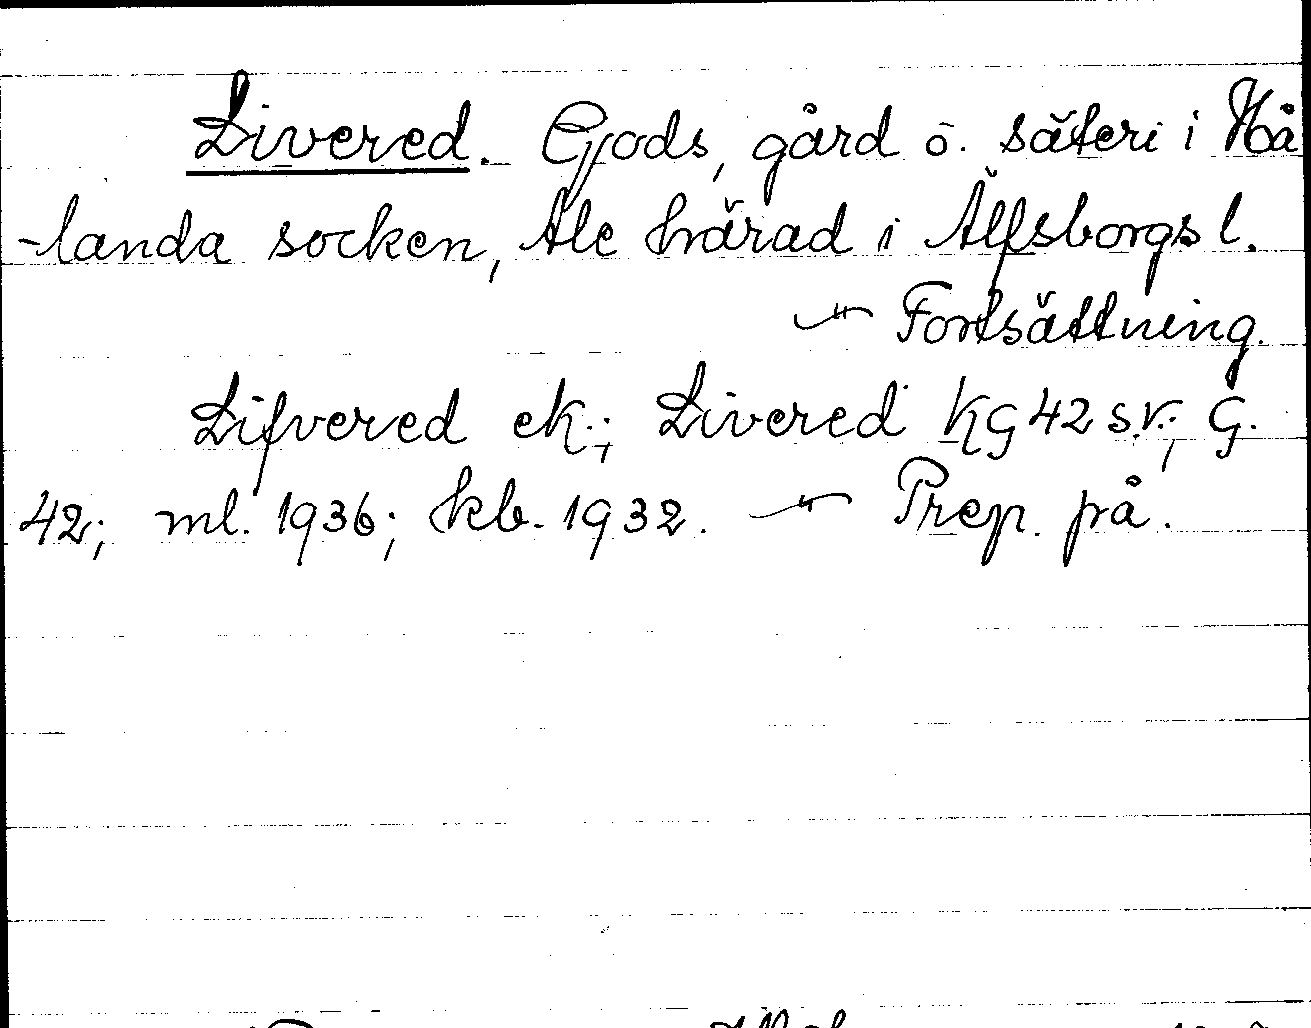 Livered. Gods, gård o. säteri i Hå
-landa socken, Ale härad i Älfsborgs l.
—"— Fortsättning.
Lifvered ek.; Livered KG 42 s.v.; G.
42; ml. 1936; kb. 1932. —"— Prep. på.